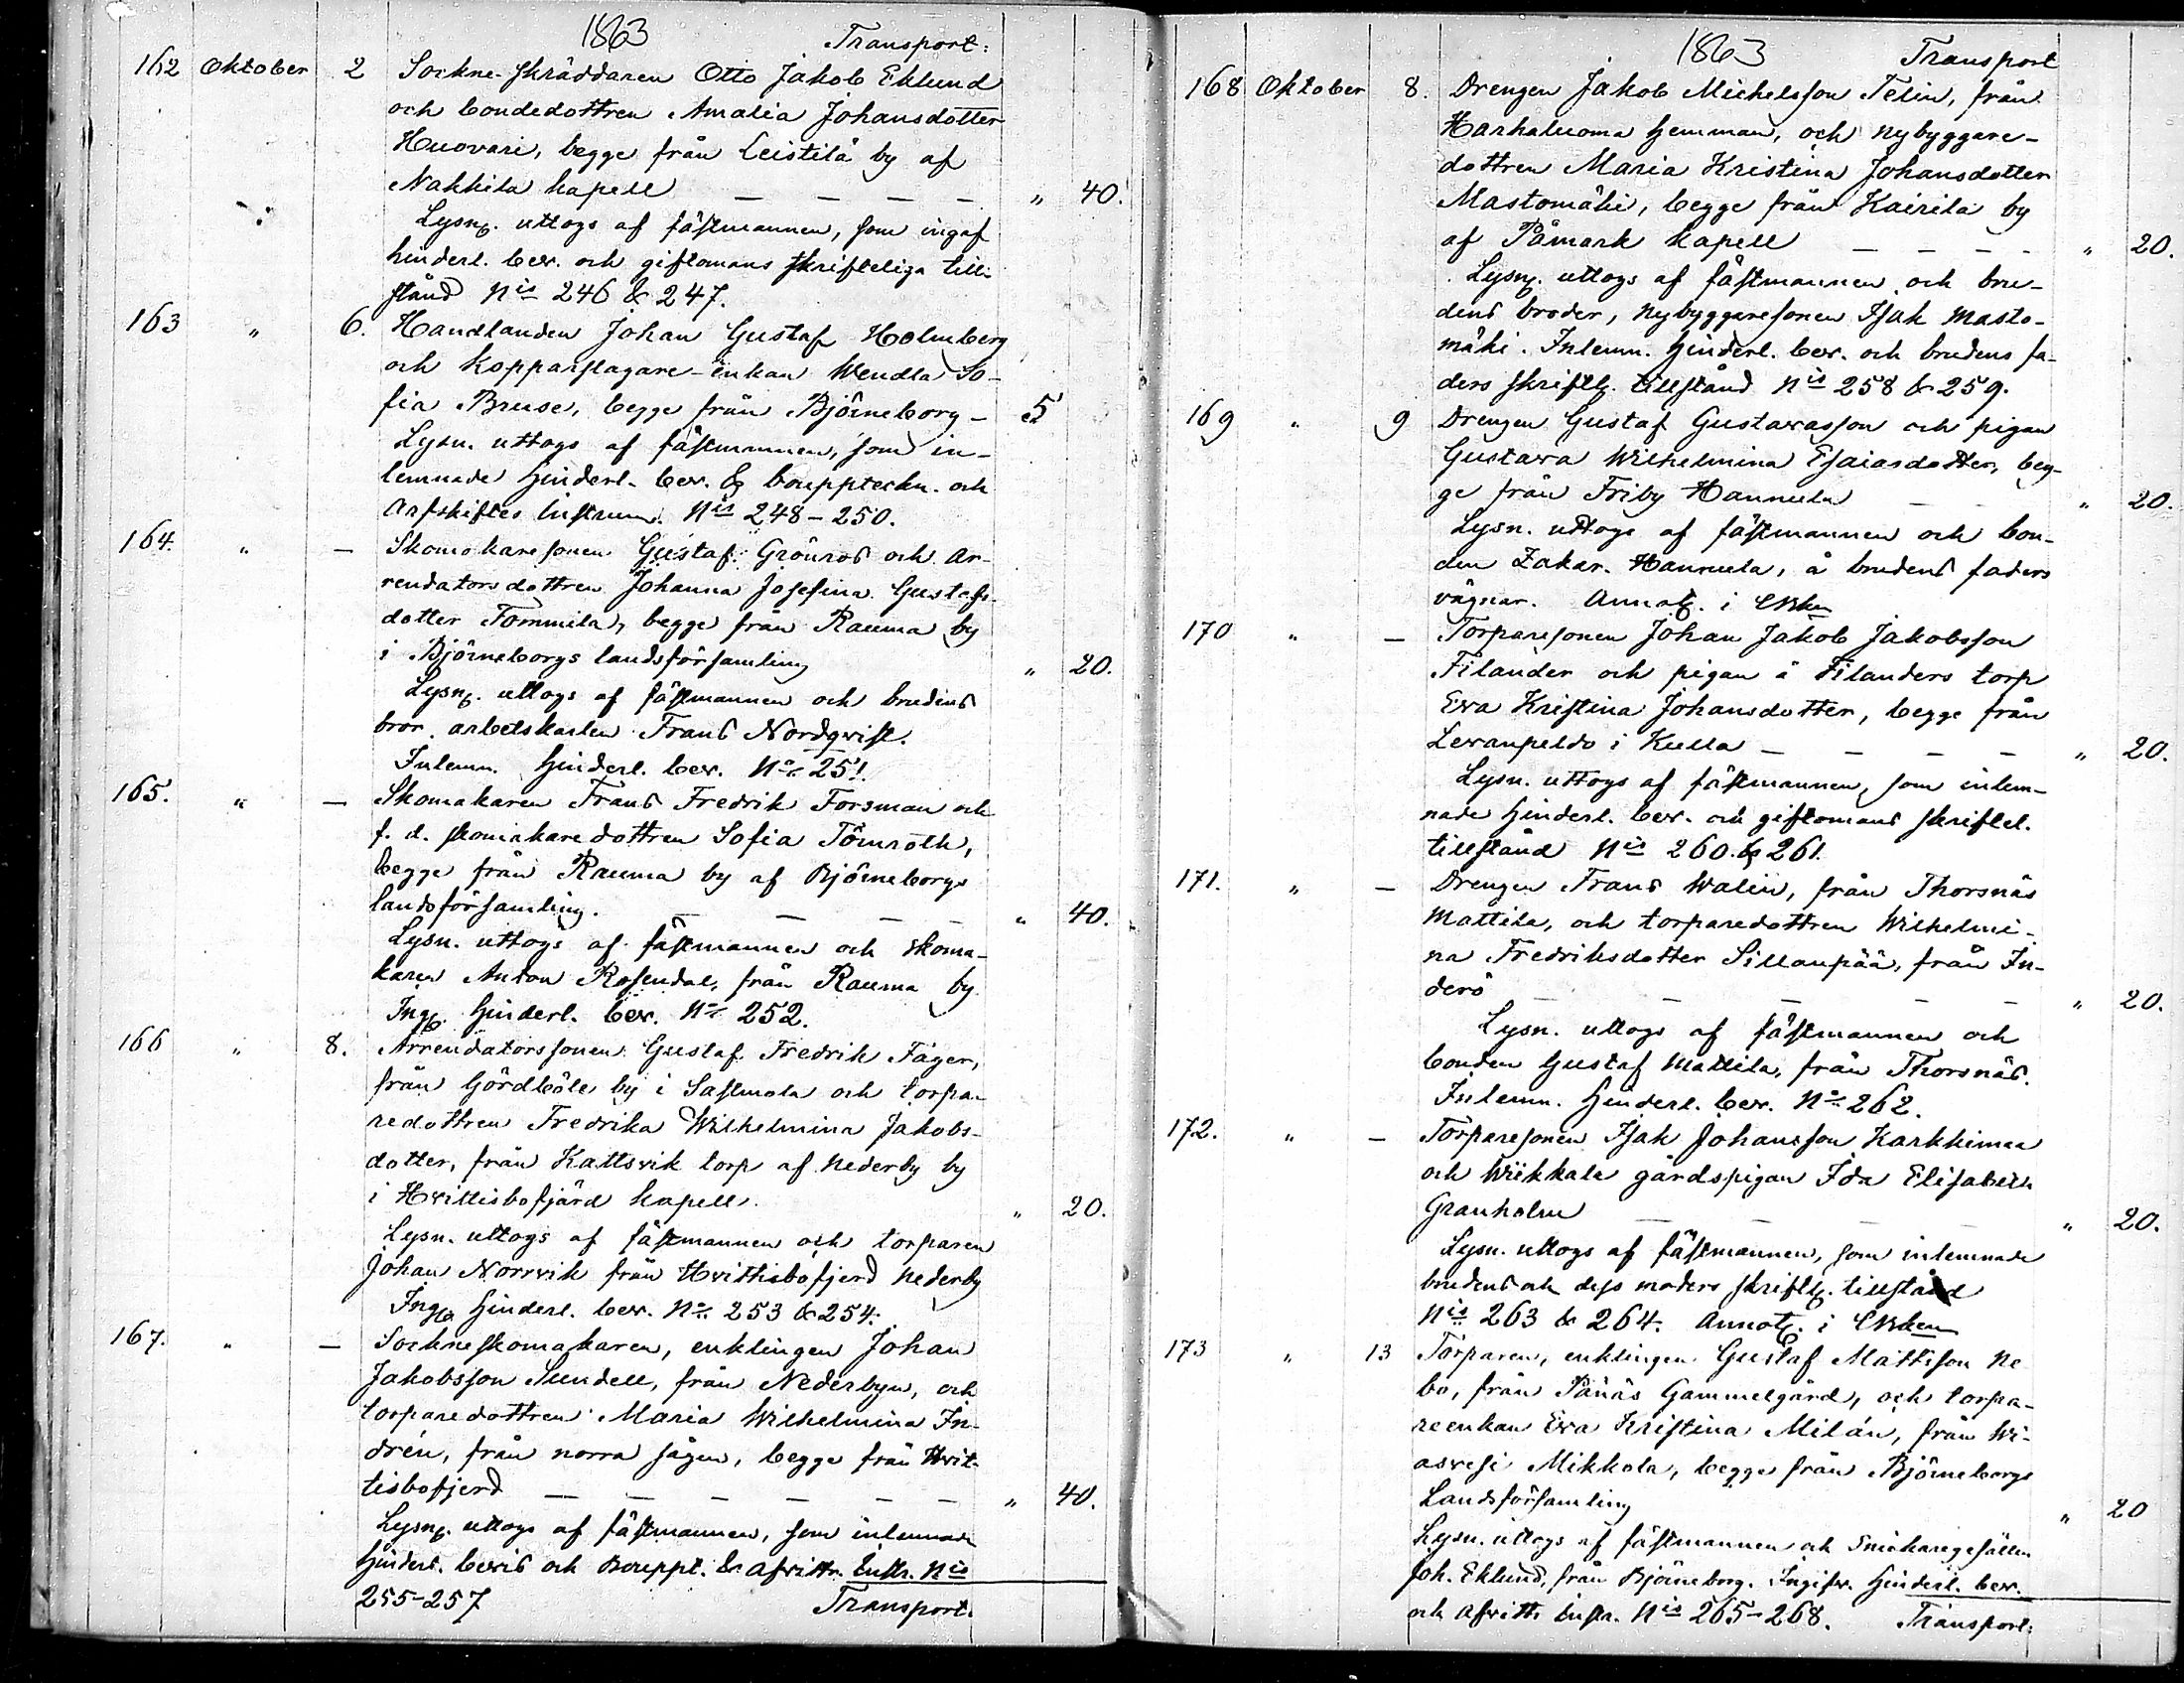 1863 Transport:
162 Oktober 2 Sockne-skräddaren Otto Jakob Eklund
och bondedottren Amalia Johansdotter
Huovari, begge från Leistilä by af
Nakkila kapell — — — — " 40.
Lysng. uttogs af fästmannen, som ingaf
hinderl. bev. och giftomans skrifteliga till-
stånd Nis 246 & 247.
163 " 6. Handlanden Johan Gustaf Holmberg
och kopparslagare-enkan Wendla So-
fia Bruse, begge från Björneborg — 5
Lysn. uttogs af fästmannen, som in-
lemnade hinderl. bev. & bouppteckn. och
Arfskiftes instrum. Nis 248-250.
164. " — Skomakaresonen Gustaf Grönros och Ar-
rendatorsdottren Johanna Josefina Gustafs-
dotter Tommila, begge från Rauma by
i Björneborgs landsförsamling " 20.
Lysng. uttogs af fästmannen och brudens
bror, arbetskarlen Frans Nordqvist.
Inlemn. hinderl. bev. No 251.
165. " — Skomakaren Frans Fredrik Forsman och
f. d. skomakaredottren Sofia Törnroth,
begge från Rauma by af Björneborgs
landsförsamling. — — — — " 40.
Lysn. uttogs af fästmannen och skoma-
karen Anton Rosendal, från Rauma by
Ingg. hinderl. bev. No 252.
166 " 8. Arrendatorssonen Gustaf Fredrik Fager,
från Gårdböle by i Sastmola och torpa-
redottren Fredrika Wilhelmina Jakobs-
dotter, från Kattsvik torp af Nederby by
i Hvittisbofjärd kapell. " 20.
Lysn. uttogs af fästmannen och torparen
Johan Norrvik från Hvittisbofjerd Nederby
Ingg. hinderl. bev. No 253 & 254.
167. " — Sockneskomakaren, enklingen Johan
Jakobsson Sundell, från Nederbyn, och
torparedottren Maria Wilhelmina In-
drén, från norra sågen, begge från Hvit-
tisbofjerd — — — — — — " 40.
Lysng. uttogs af fästmannen, som inlemnade
hinderl. bevis och Bouppt. & afvittr. instr. Nis
255-257 Transport.
1863 Transport
168 Oktober 8. Drengen Jakob Michelsson Telin, från
Harhaluoma hemman, och nybyggare-
dottren Maria Kristina Johansdotter
Mastomäki, begge från Kairila by
af Påmark kapell — — — — " 20.
Lysng. uttogs af fästmannen och bru-
dens broder, nybyggaresonen Isak Masto-
mäki. Inlemn. hinderl. bev. och brudens fa-
ders skriftlg. tillstånd Nis 258 & 259.
169 " 9 Drengen Gustaf Gustavasson och pigan
Gustava Wilhelmina Esaiasdotter, beg-
ge från Friby Hannula — — " 20.
Lysn. uttogs af fästmannen och bon-
den Zakar. Hannula, å brudens faders
vägnar. Annotg. i
170 " — Torparesonen Johan Jakob Jakobsson
Filander och pigan å Filanders torp
Eva Kristina Johansdotter, begge från
Levanpeldo i Kulla — — — — " 20.
Lysn. uttogs af fästmannen, som inlem-
nade hinderl. bev. och giftomans skriftel.
tillstånd Nis 260. & 261.
171. " — Drengen Frans Walin, från Thorsnäs
Mattila, och torparedottren Wilhelmi-
na Fredriksdotter Sillanpää, från In-
derö — — — — — " 20.
Lysn. uttogs af fästmannen och
bonden Gustaf Mattila, från Thorsnäs.
Inlemn. hinderl. bev. No 262.
172. " — Torparesonen Isak Johansson Karkkimaa
och Wiikkala gårdspigan Ida Elisabeth
Granholm — — — — " 20.
Lysn. uttogs af fästmannen, som inlemnade
brudens och dess moders skriftlg. tillstånd
Nis 263 & 264. Annotg. i
173 " 13 Torparen, enklingen Gustaf Mattsson Ne
bo, från Pänäs Gammelgård, och torpa-
reenkan Eva Kristina Milán, från Wi-
asvesi Mikkola, begge från Björneborgs
Landsförsamling " 20
Lysn. uttogs af fästmannen och Snickaregesällen
Joh. Eklund, från Björneborg. Ingifv. hinderl. bev.
och afvittr. instr. Nis 265-268. Transport: